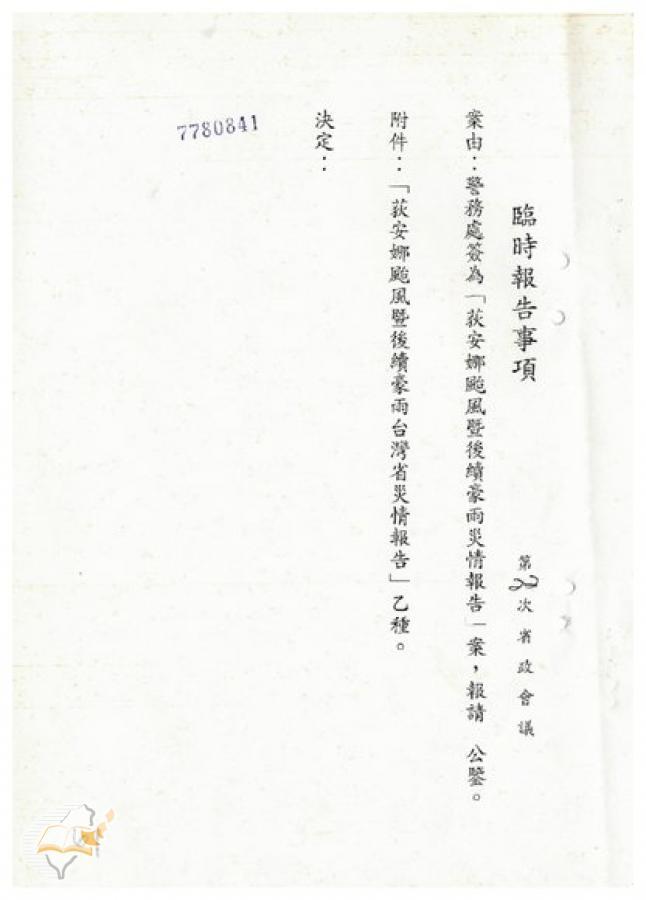 臨時報告事項
第2次省政會議
案由：警務處簽為「荻安娜颱風暨後續豪雨災情報告」一案，報請　公鑒。
附件：「荻安娜颱風暨後續豪雨台灣省災情報告」乙種。
決定：
7780841